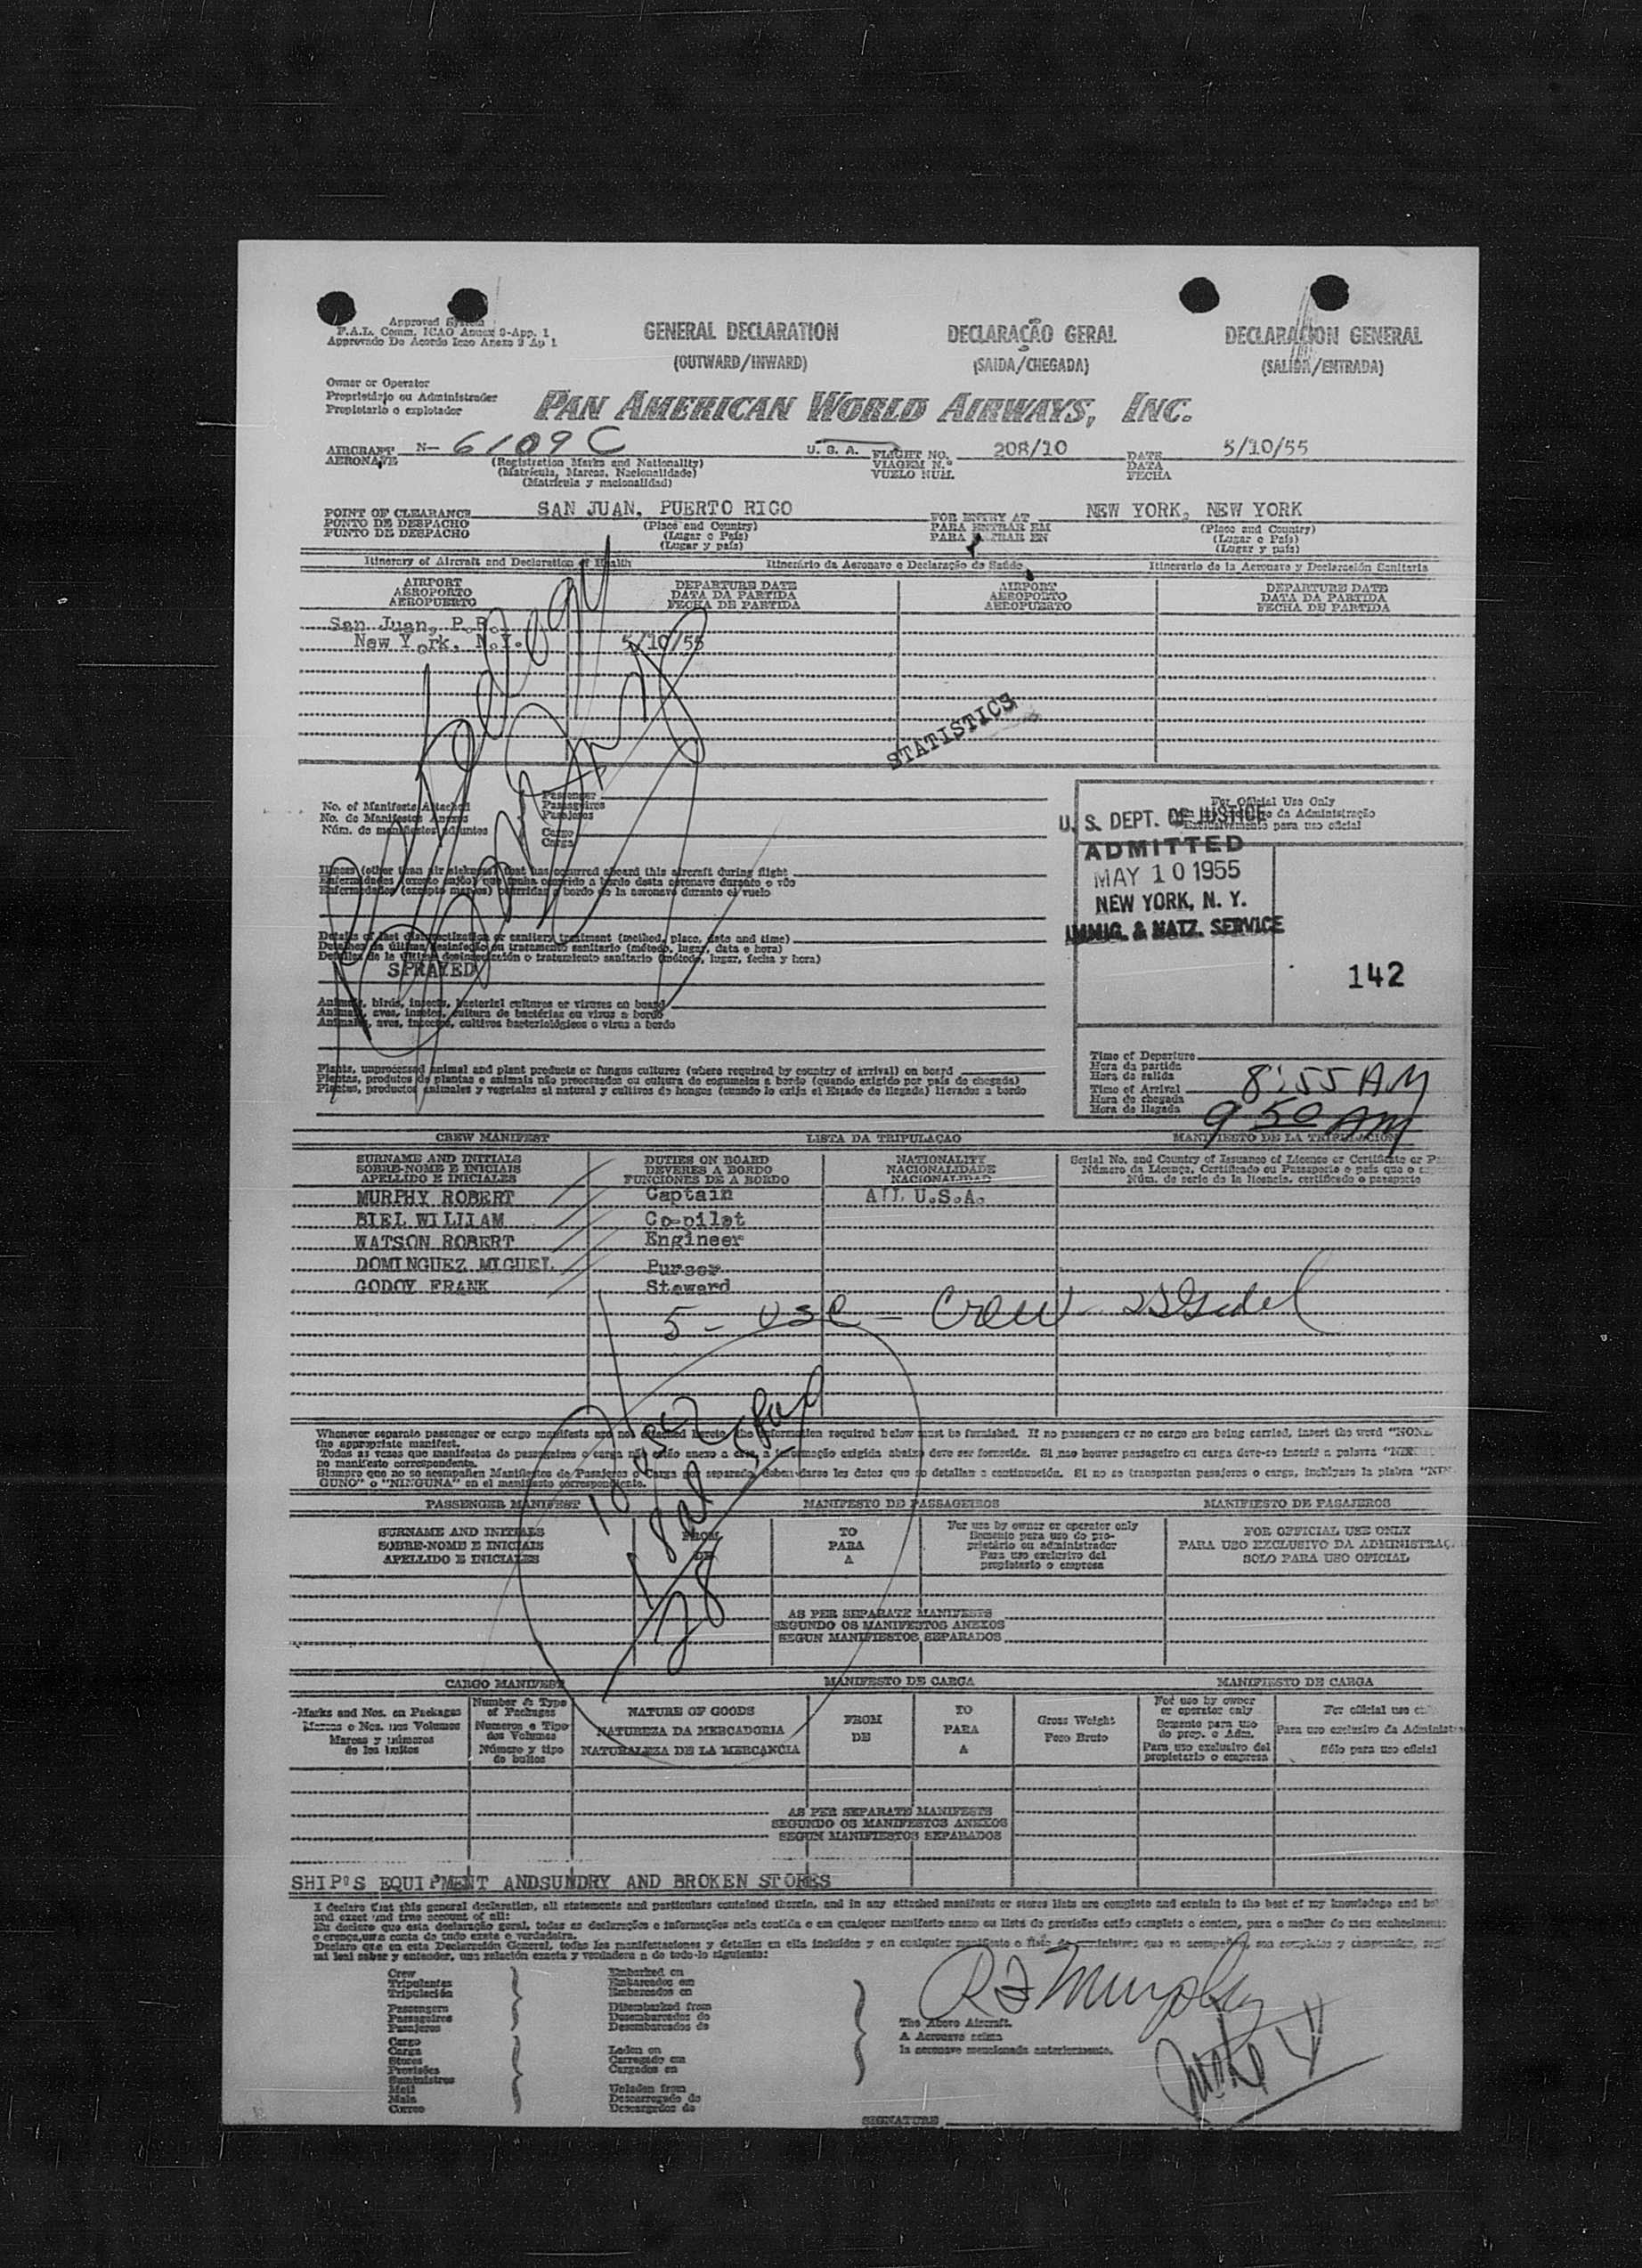 Approved System
F.A.L. Comm. ICAO Annex 9-App. 1
Approvado De Acordo Icao Anexo 9 Ap 1
GENERAL DECLARATION
(OUTWARD/INWARD)
DECLARAÇÃO GERAL
(SAIDA/CHEGADA)
DECLARACION GENERAL
(SALIDA/ENTRADA)
Owner or Operator
Proprietário ou Administrader
Propietario o explotador
PAN AMERICAN WORLD AIRWAYS, INC.
AIRCRAFT N- 6109C U. S. A. FLIGHT NO. 208/10 DATE 5/10/55
AERONAVE (Registration Marks and Nationality) VIAGEM N.º DATA
(Matrícula, Marcas, Nacionalidade) VUELO NUM. FECHA
(Matrícula y nacionalidad)
POINT OF CLEARANCE SAN JUAN, PUERTO RICO FOR ENTRY AT NEW YORK, NEW YORK
PONTO DE DESPACHO (Place and Country) PARA ENTRAR EM (Place and Country)
PUNTO DE DESPACHO (Lugar e País) PARA ENTRAR EN (Lugar e País)
(Lugar y país) (Lugar y país)
Itinerary of Aircraft and Declaration of Health Itinerário da Aeronave e Declaração de Saúde Itinerario de la Aeronave y Declaración Sanitaria
AIRPORT DEPARTURE DATE AIRPORT DEPARTURE DATE
AEROPORTO DATA DA PARTIDA AEROPORTO DATA DA PARTIDA
AEROPUERTO FECHA DE PARTIDA AEROPUERTO FECHA DE PARTIDA
San Juan, P.R.
New York, N.Y. 5/10/55
STATISTICS
No. of Manifests Attached Passenger
No. de Manifestos Anexos Passageiros
Núm. de manifiestos adjuntos Pasajeros
Cargo
Carga
For Official Use Only
Exclusivamente para uso oficial
U. S. DEPT. OF JUSTICE
ADMITTED
MAY 10 1955
NEW YORK, N. Y.
IMMIG. & NATZ. SERVICE
142
Illness (other than air sickness) that has occurred aboard this aircraft during flight
Enfermidades (exceto enjôo) que tenha ocorrido a bordo desta aeronave durante o vôo
Enfermedades (excepto mareos) ocurridas a bordo de la aeronave durante el vuelo
Details of last disinsectization or sanitary treatment (method, place, date and time)
Detalhes da última desinfeção ou tratamento sanitario (método, lugar, data e hora)
Detalles de la última desinsectación o tratamiento sanitario (método, lugar, fecha y hora)
SPRAYED
Animals, birds, insects, bacterial cultures or viruses on board
Animais, aves, insetos, cultura de bactérias ou virus a bordo
Animales, aves, insectos, cultivos bacteriológicos o virus a bordo
Plants, unprocessed animal and plant products or fungus cultures (where required by country of arrival) on board
Plantas, produtos de plantas e animais não processados ou cultura de cogumelos a bordo (quando exigido por país de chegada)
Plantas, productos animales y vegetales al natural y cultivos de hongos (cuando lo exija el Estado de llegada) llevados a bordo
Time of Departure
Hora da partida
Hora de salida 8:55 AM
Time of Arrival
Hora de chegada
Hora de llegada 9 50 AM
CREW MANIFEST LISTA DA TRIPULAÇAO MANIFIESTO DE LA TRIPULACION
SURNAME AND INITIALS DUTIES ON BOARD NATIONALITY Serial No. and Country of Issuance of Licence or Certificate or
SOBRE-NOME E INICIAIS DEVERES A BORDO NACIONALIDADE Número da Licença, Certificado ou Passaporte e país que o
APELLIDO E INICIALES FUNCIONES DE A BORDO NACIONALIDAD Núm. de serie de la licencia, certificado o pasaporte
MURPHY ROBERT Captain All U.S.A.
BIEL WILLIAM Co-pilot
WATSON ROBERT Engineer
DOMINGUEZ MIGUEL Purser
GODOY FRANK Steward
5 - USC - Crew
28
Whenever separate passenger or cargo manifests are not attached hereto, the information required below must be furnished. If no passengers or no cargo are being carried, insert the word "NONE
the appropriate manifest.
Todas as vezes que manifestos de passageiros e carga não estão anexo a este, a informação exigida abaixo deve ser fornecida. Si nao houver passageiro ou carga deve-se inserir a palavra
no manifesto correspondente.
Siempre que no se acompañen Manifiestos de Pasajeros o Carga por separado, deben darse los datos que se detallan a continuación. Si no se transportan pasajeros o carga, inclúyase la plabra "NIN
GUNO" o "NINGUNA" en el manifiesto correspondiente.
PASSENGER MANIFEST MANIFESTO DE PASSAGEIROS MANIFIESTO DE PASAJEROS
SURNAME AND INITIALS FROM TO For use by owner or operator only FOR OFFICIAL USE ONLY
SOBRE-NOME E INICIAIS DE PARA Somente para uso de pro- PARA USO EXCLUSIVO DA ADMINISTRAÇ
APELLIDO E INICIALES A prietário ou administrador SOLO PARA USO OFICIAL
Para uso exclusivo del
propietario o empresa
AS PER SEPARATE MANIFESTS
SEGUNDO OS MANIFESTOS ANEXOS
SEGUN MANIFIESTOS SEPARADOS
CARGO MANIFEST MANIFESTO DE CARGA MANIFIESTO DE CARGA
Marks and Nos. on Packages Number & Type of Packages NATURE OF GOODS FROM TO Gross Weight For use by owner or operator only For oficial use
Marcas e Nos. nos Volumes Numeros e Tipo dos Volumes NATUREZA DA MERCADORIA DE PARA Peso Bruto Somente para uso do prop. o Adm. Para uso exclusivo da Administ
Marcas y números de los bultos Número y tipo de bultos NATURALEZA DE LA MERCANCIA A Para uso exclusivo del propietario o empresa Sólo para uso oficial
AS PER SEPARATE MANIFESTS
SEGUNDO OS MANIFESTOS ANEXOS
SEGUN MANIFIESTOS SEPARADOS
SHIP'S EQUIPMENT ANDSUNDRY AND BROKEN STORES
I declare that this general declaration, all statements and particulars contained therein, and in any attached manifests or stores lists are complete and contain to the best of my knowledge and
and exact and true account of all:
Eu declaro que esta declaração geral, todas as declarações e informações nela contida e em qualquer manifesto anexo ou lista de provisões estão completo e contem, para o melhor do meu conhecimento
e crença, uma conta de tudo exata e verdadeira.
Declaro que en esta Declaración General, todas las manifestaciones y detalles en ella incluidos y en cualquier manifiesto o lista de suministros que se acompañen, son completos y
mi leal saber y entender, una relación exacta y verdadera de todo lo siguiente:
Crew Embarked on
Tripulantes Embarcados em
Tripulación Embarcados en
Passengers Disembarked from
Passageiros Desembarcados de
Pasajeros Desembarcados de
Cargo
Carga Laden on
Stores Carregado em
Provisões Cargados en
Suministros
Mail Unladen from
Mala Descarregado de
Correo Descargados de
R F Murphy
The Above Aircraft.
A Aeronave acima
la aeronave mencionada anteriormente.
SIGNATURE